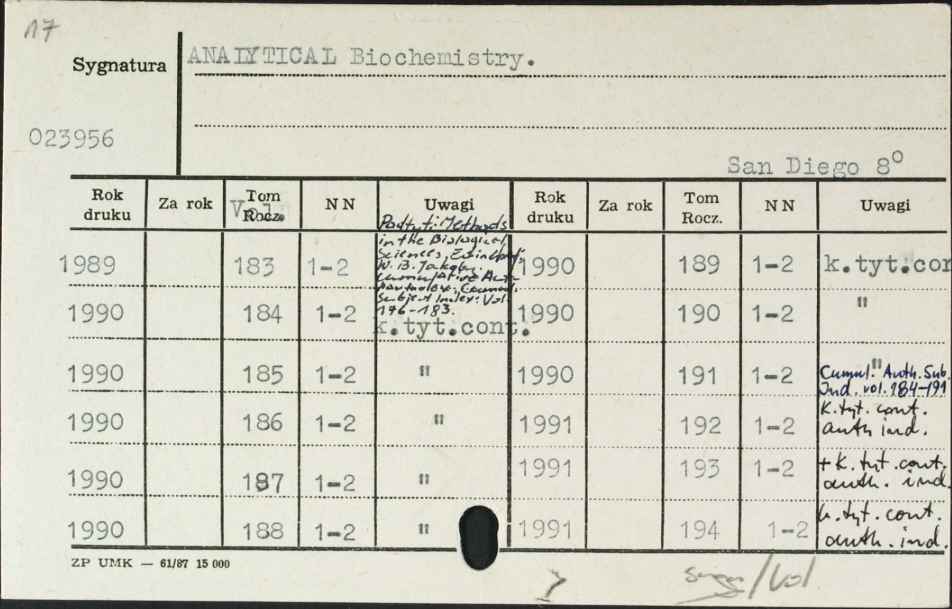 17
Sygnatura ANALYTICAL Biochemistry.
023956
San Diego 8º
Rok druku Za rok Tom Rocz. Vol. NN Uwagi Rok druku Za rok Tom Rocz. NN Uwagi
Podtyt: Methods
in the Biological
Sciences,
W. B. Jakoby.
Cumulative
Subject Index: Vol.
176-183.
1989 183 1-2 1990 189 1-2 k.tyt.con
1990 184 1-2 k.tyt.cont. 1990 190 1-2 "
1990 185 1-2 " 1990 191 1-2 "
Cumul. Auth. Sub.
Ind. vol. 184-191
1990 186 1-2 " 1991 192 1-2 K.tyt. cont.
auth ind.
1990 187 1-2 " 1991 193 1-2 + k. tyt. cont.
auth. ind.
1990 188 1-2 " 1991 194 1-2 k.tyt. cont.
auth. ind.
ZP UMK — 61/87 15 000
/Vol